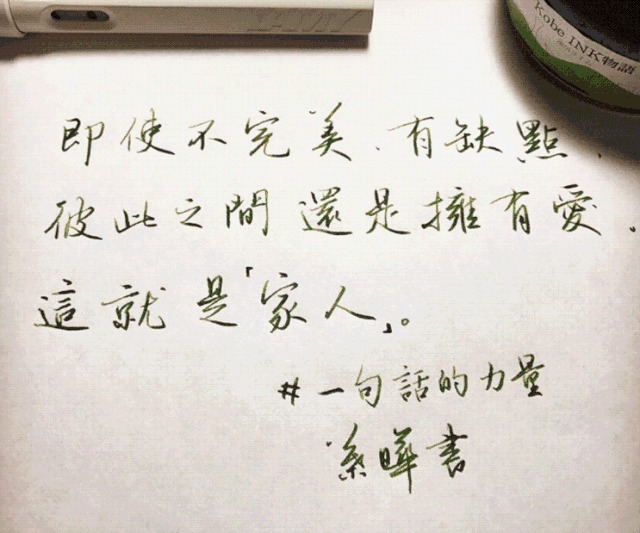 LAMY
Kobe INK物語
即使不完美、有缺點、
彼此之間還是擁有愛,
這就是「家人」。
#一句話的力量
曄書